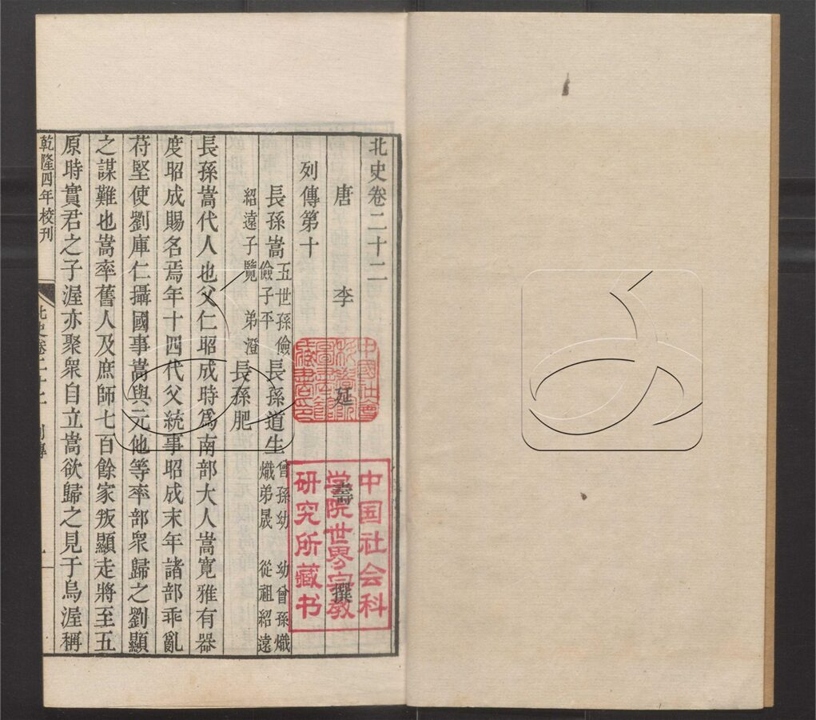 北史卷二十二
唐李延壽撰
列傳第十
長孫嵩 五世孫儉 儉子平 長孫道生 曾孫幼 幼曾孫熾 熾弟晟 從祖紹遠
紹遠子覽 弟澄 長孫肥
長孫嵩代人也父仁昭成時爲南部大人嵩寬雅有器
度昭成賜名焉年十四代父統事昭成末年諸部乖亂
苻堅使劉庫仁攝國事嵩與元他等率部衆歸之劉顯
之謀難也嵩率舊人及庶師七百餘家叛顯走將至五
原時寔君之子渥亦聚衆自立嵩欲歸之見于烏渥稱
乾隆四年校刊
北史卷二十二 列傳
一
中國社會
科學院
圖書館
藏書印
中国社会科
学院世界宗教
研究所藏书